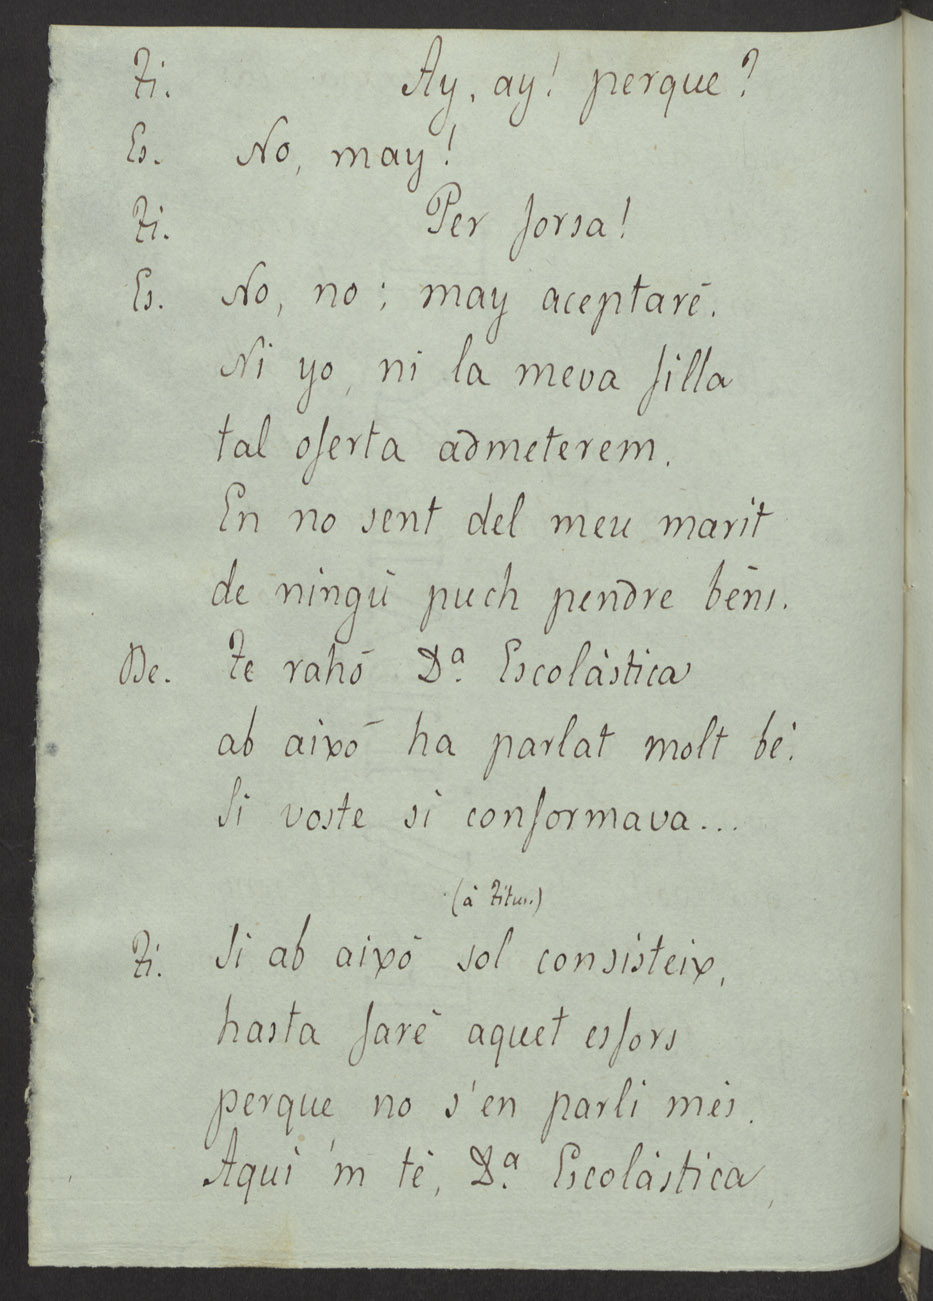 Ti. Ay, ay! perque?
Es. No, may!
Ti. Per forsa!
Es. No, no; may aceptaré.
Ni yo, ni la meva filla
tal oferta admeterem.
En no sent del meu marit
de ningú puch pendre béns.
De. Te rahó Dª. Escolástica
ab aixó ha parlat molt bé.
Si voste si conformava...
(á Titus.)
Ti. Si ab aixó sol consisteix,
hasta faré aquet esfors
perque no s'en parli més.
Aquí 'm té, Dª. Escolástica,